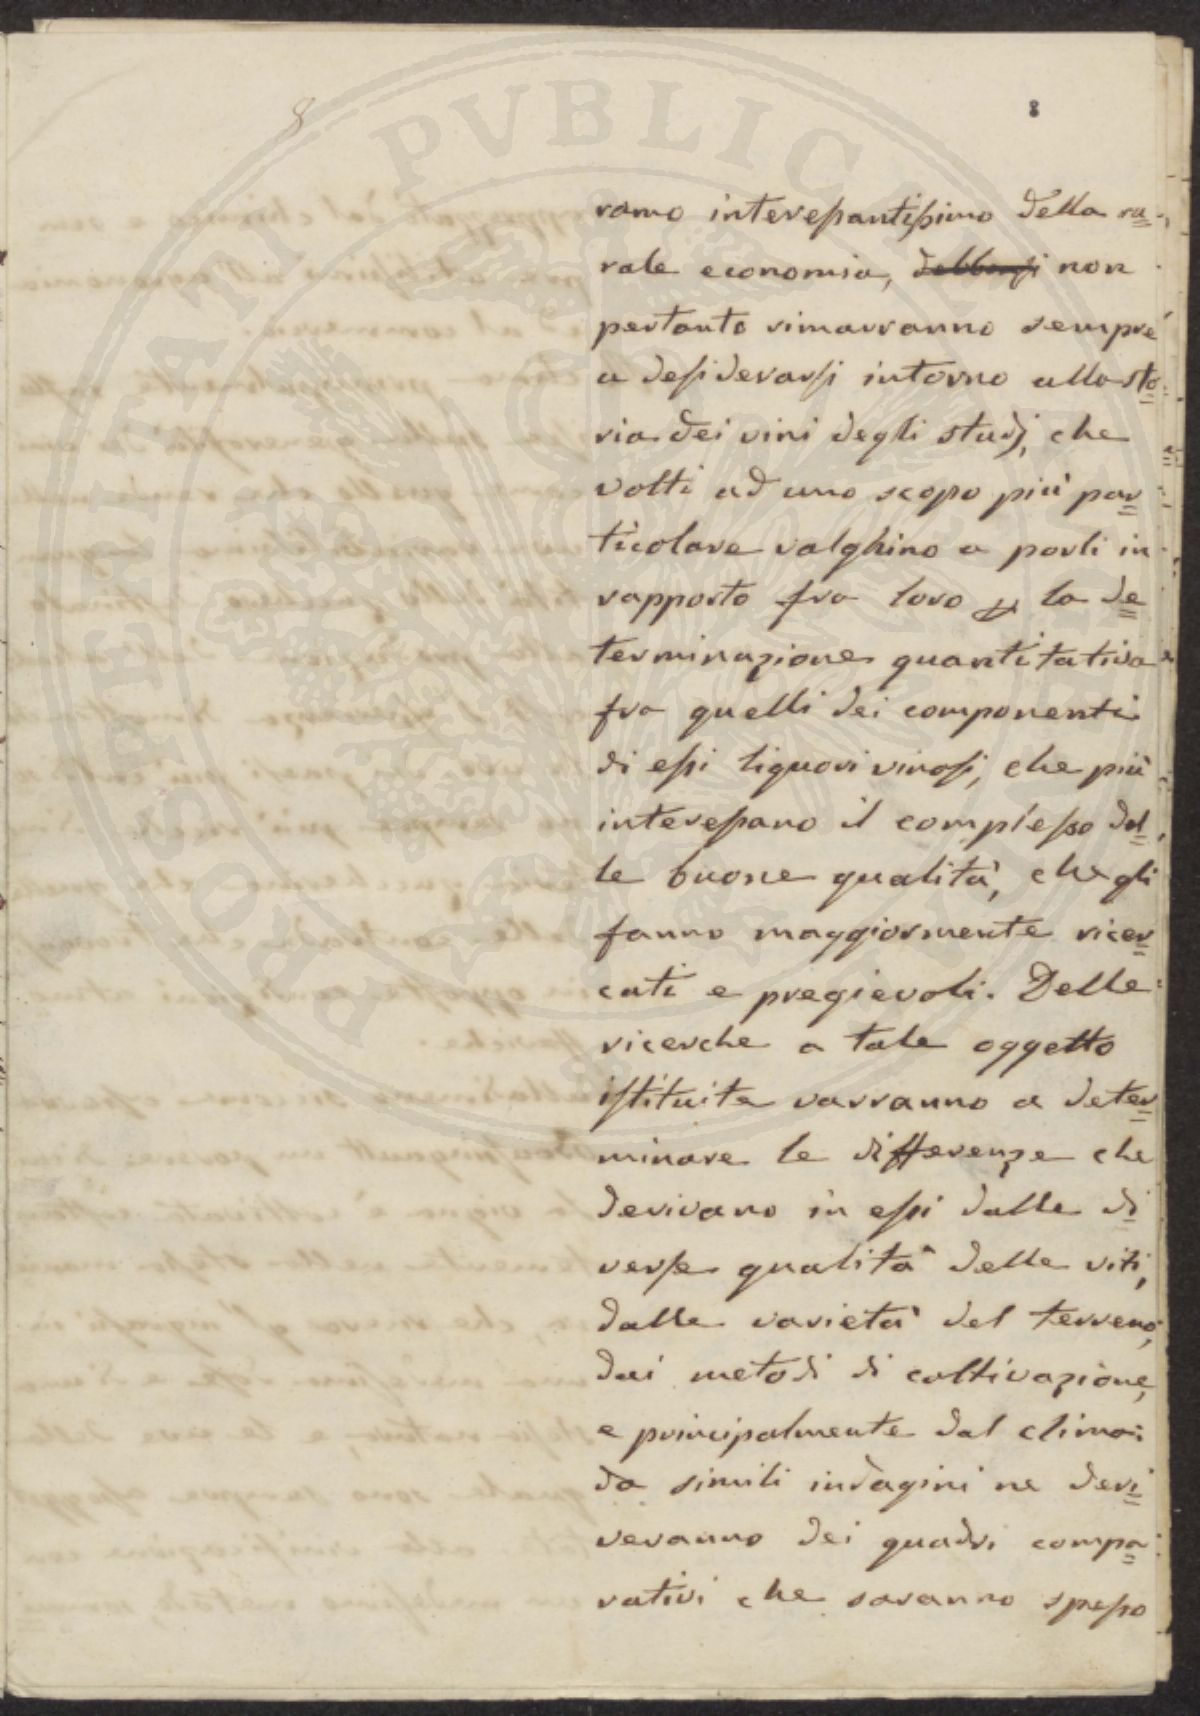 8
8
ramo interessantissimo della ru=
rale economia, debbonsi non
pertanto rimarranno sempre
a desiderarsi intorno alla sto=
ria dei vini degli studj, che
volti ad uno scopo più par=
ticolare valghino a porli in
rapporto fra loro la de=
terminazione quantitativa
fra quelli dei componenti
di essi liquori vinosi, che più
interessano il complesso del=
le buone qualità, che gli
fanno maggiormente ricer=
cati e pregievoli. Delle
ricerche a tale oggetto
istituite varranno a deter=
minare le differenze che
derivano in essi dalle di=
verse qualità delle viti,
dalla varietà del terreno,
dai metodi di coltivazione,
e principalmente dal clima:
da simili indagini ne deri=
veranno dei quadri compa=
rativi che saranno spesso
PROSPERITATI PVBLICAE